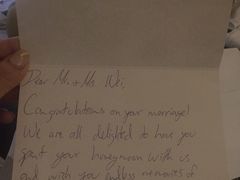 Dear Mr. + Mrs. Wei,
Congratulations on your marriage!
We are all delighted to have you
spent your honeymoon with us
and wish you endless memories of